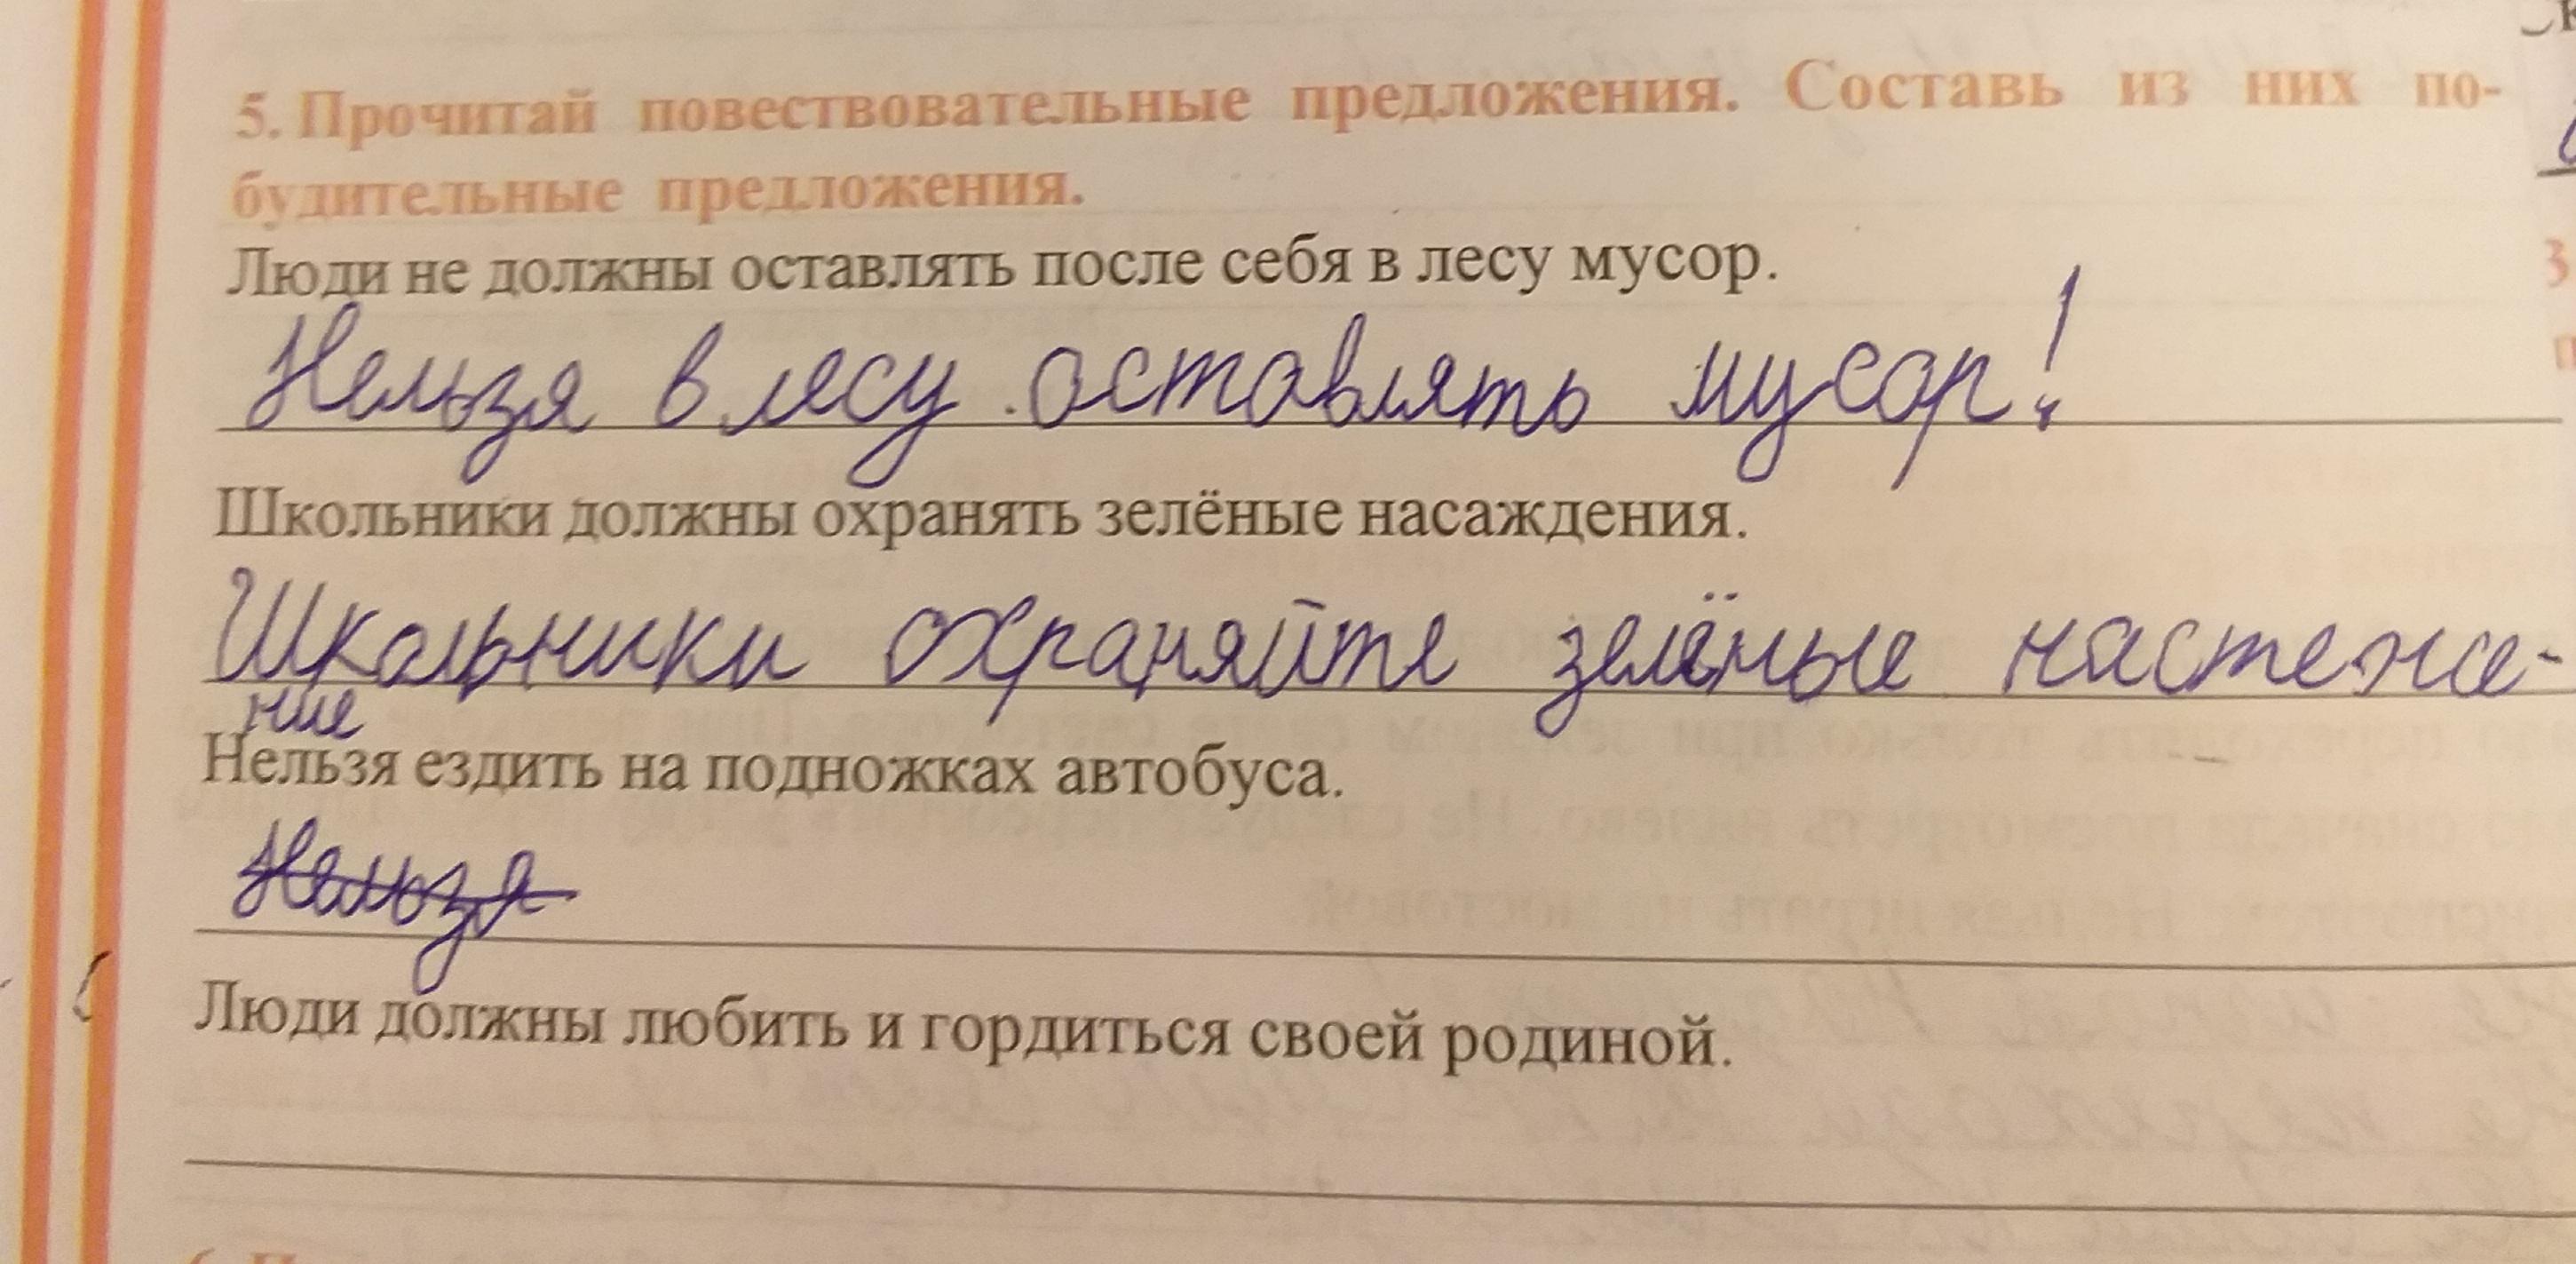 5. Прочитай повествовательные предложения. Составь из них по-
будительные предложения.
Люди не должны оставлять после себя в лесу мусор.
Нельзя в лесу оставлять мусор!
Школьники должны охранять зелёные насаждения.
Школьники охраняйте зелёные настеже-
ние
Нельзя ездить на подножках автобуса.
Нельзя
Люди должны любить и гордиться своей родиной.